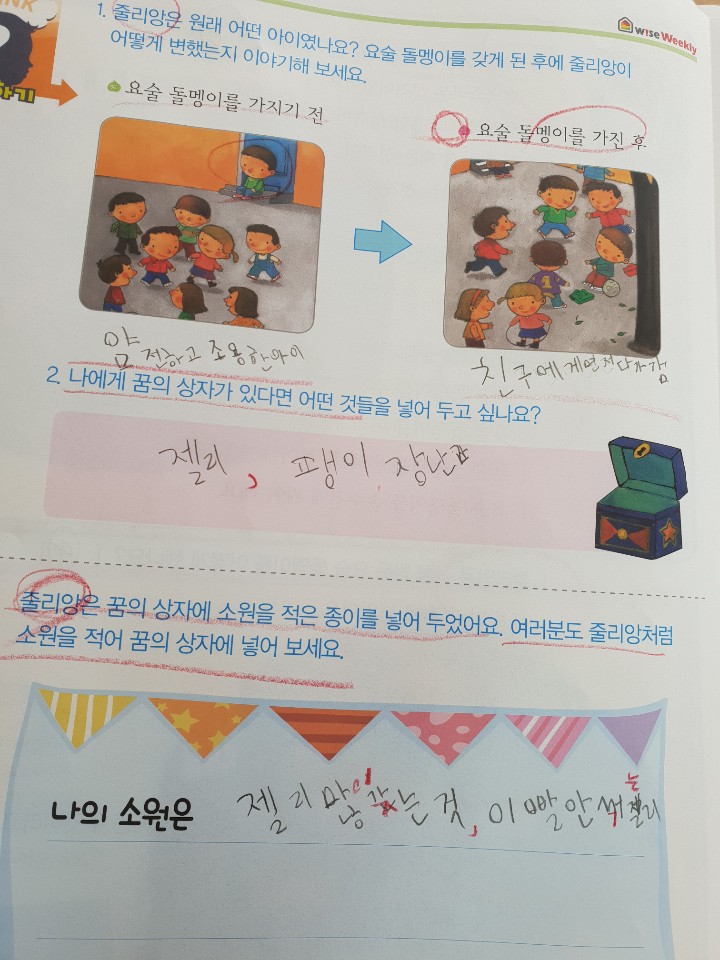 INK
하기
wise Weekly
1. 줄리앙은 원래 어떤 아이였나요? 요술 돌멩이를 갖게 된 후에 줄리앙이
어떻게 변했는지 이야기해 보세요.
요술 돌멩이를 가지기 전
요술 돌멩이를 가진 후
1
얌전하고 조용한아이
친구에게먼저다가감
2. 나에게 꿈의 상자가 있다면 어떤 것들을 넣어 두고 싶나요?
젤리, 팽이 장난감
줄리앙은 꿈의 상자에 소원을 적은 종이를 넣어 두었어요. 여러분도 줄리앙처럼
소원을 적어 꿈의 상자에 넣어 보세요.
나의 소원은 젤리 많이 는 것, 이빨안썩는 젤리